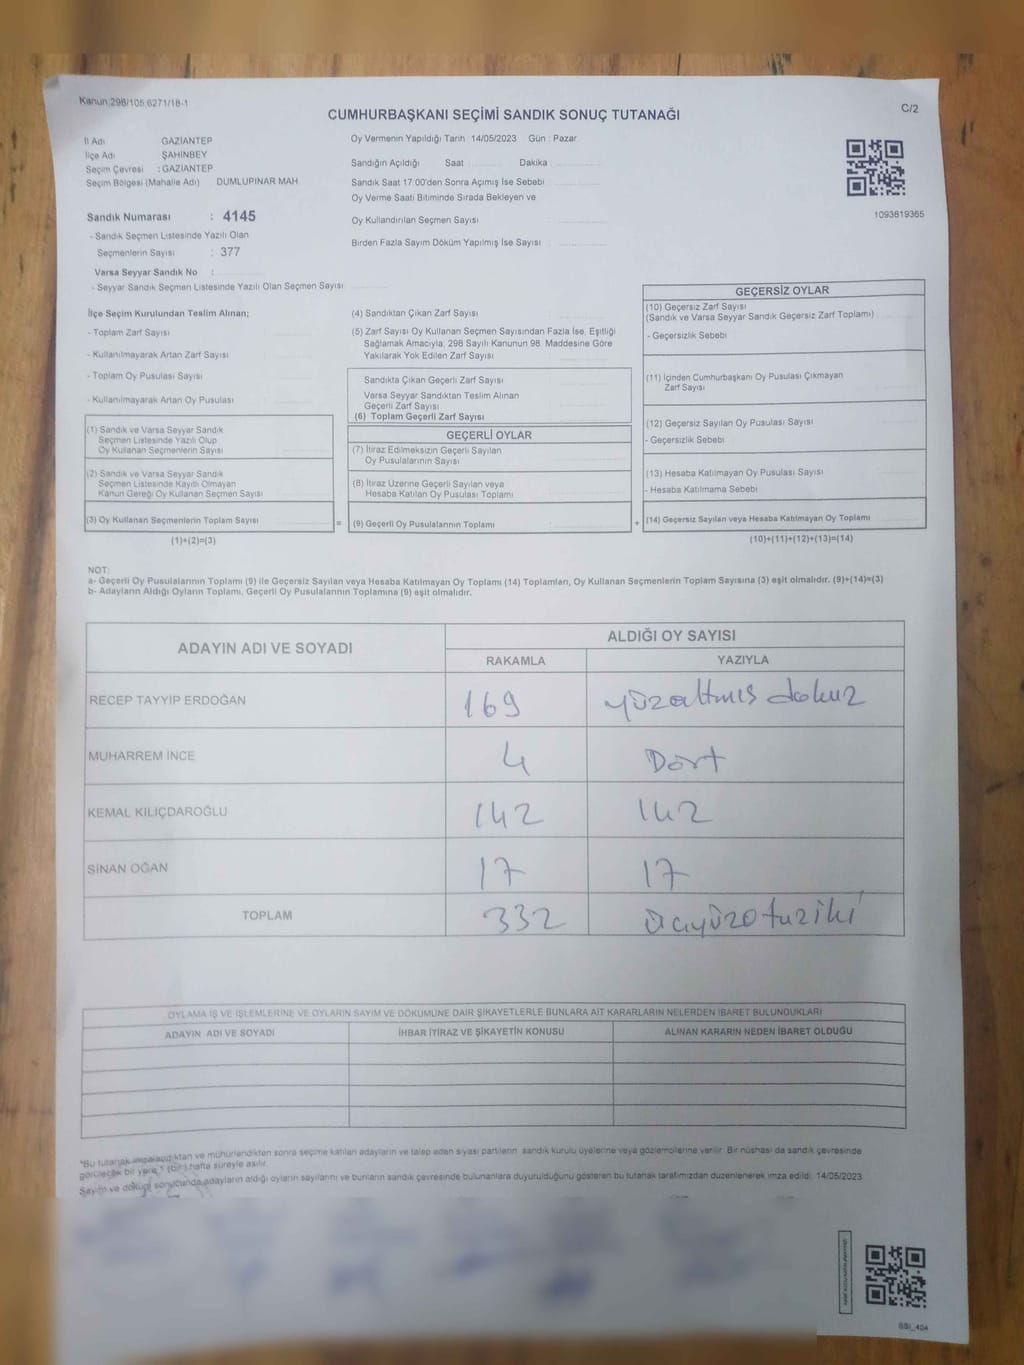 Kanun:298/105,6271/18-1
CUMHURBAŞKANI SEÇİMİ SANDIK SONUÇ TUTANAĞI
C/2
İl Adı GAZİANTEP
İlçe Adı ŞAHİNBEY
Seçim Çevresi : GAZİANTEP
Seçim Bölgesi (Mahalle Adı) DUMLUPINAR MAH
Sandık Numarası : 4145
- Sandık Seçmen Listesinde Yazılı Olan
Seçmenlerin Sayısı : 377
Varsa Seyyar Sandık No :
- Seyyar Sandık Seçmen Listesinde Yazılı Olan Seçmen Sayısı
Oy Vermenin Yapıldığı Tarih 14/05/2023 Gün : Pazar
Sandığın Açıldığı Saat Dakika
Sandık Saat 17:00'den Sonra Açımış İse Sebebi
Oy Verme Saati Bitiminde Sırada Bekleyen ve
Oy Kullandırılan Seçmen Sayısı
Birden Fazla Sayım Döküm Yapılmış İse Sayısı
1093819365
İlçe Seçim Kurulundan Teslim Alınan;
- Toplam Zarf Sayısı
- Kullanılmayarak Artan Zarf Sayısı
- Toplam Oy Pusulası Sayısı
- Kullanılmayarak Artan Oy Pusulası
(1) Sandık ve Varsa Seyyar Sandık
Seçmen Listesinde Yazılı Olup
Oy Kullanan Seçmenlerin Sayısı
(2) Sandık ve Varsa Seyyar Sandık
Seçmen Listesinde Kayıtlı Olmayan
Kanun Gereği Oy Kullanan Seçmen Sayısı
(3) Oy Kullanan Seçmenlerin Toplam Sayısı
(1)+(2)=(3)
=
(4) Sandıktan Çıkan Zarf Sayısı
(5) Zarf Sayısı Oy Kullanan Seçmen Sayısından Fazla İse, Eşitliği
Sağlamak Amacıyla, 298 Sayılı Kanunun 98. Maddesine Göre
Yakılarak Yok Edilen Zarf Sayısı
Sandıkta Çıkan Geçerli Zarf Sayısı
Varsa Seyyar Sandıktan Teslim Alınan
Geçerli Zarf Sayısı
(6) Toplam Geçerli Zarf Sayısı
GEÇERLİ OYLAR
(7) İtiraz Edilmeksizin Geçerli Sayılan
Oy Pusulalarının Sayısı
(8) İtiraz Üzerine Geçerli Sayılan veya
Hesaba Katılan Oy Pusulası Toplamı
(9) Geçerli Oy Pusulalarının Toplamı
+
GEÇERSİZ OYLAR
(10) Geçersiz Zarf Sayısı
(Sandık ve Varsa Seyyar Sandık Geçersiz Zarf Toplamı)
- Geçersizlik Sebebi
(11) İçinden Cumhurbaşkanı Oy Pusulası Çıkmayan
Zarf Sayısı
(12) Geçersiz Sayılan Oy Pusulası Sayısı
- Geçersizlik Sebebi
(13) Hesaba Katılmayan Oy Pusulası Sayısı
- Hesaba Katılmama Sebebi
(14) Geçersiz Sayılan veya Hesaba Katılmayan Oy Toplamı
(10)+(11)+(12)+(13)=(14)
NOT:
a- Geçerli Oy Pusulalarının Toplamı (9) ile Geçersiz Sayılan veya Hesaba Katılmayan Oy Toplamı (14) Toplamları, Oy Kullanan Seçmenlerin Toplam Sayısına (3) eşit olmalıdır. (9)+(14)=(3)
b- Adayların Aldığı Oyların Toplamı, Geçerli Oy Pusulalarının Toplamına (9) eşit olmalıdır.
ADAYIN ADI VE SOYADI
ALDIĞI OY SAYISI
RAKAMLA YAZIYLA
RECEP TAYYİP ERDOĞAN 169 yüzaltmış dokuz
MUHARREM İNCE 4 Dört
KEMAL KILIÇDAROĞLU 142 142
SİNAN OĞAN 17 17
TOPLAM 332 üçyüzotuziki
OYLAMA İŞ VE İŞLEMLERİNE VE OYLARIN SAYIM VE DÖKÜMÜNE DAİR ŞİKAYETLERLE BUNLARA AİT KARARLARIN NELERDEN İBARET BULUNDUKLARI
ADAYIN ADI VE SOYADI İHBAR İTİRAZ VE ŞİKAYETİN KONUSU ALINAN KARARIN NEDEN İBARET OLDUĞU
*Bu tutanak imzalandıktan ve mühürlendikten sonra seçime katılan adayların ve talep eden siyasi partilerin sandık kurulu üyelerine veya gözlemcilerine verilir. Bir nüshası da sandık çevresinde
görülecek bir yere 1 (bir) hafta süreyle asılır.
Sayım ve döküm sonucunda adayların aldığı oyların sayılarını ve bunların sandık çevresinde bulunanlara duyurulduğunu gösteren bu tutanak tarafımızdan düzenlenerek imza edildi. 14/05/2023
SSI_404